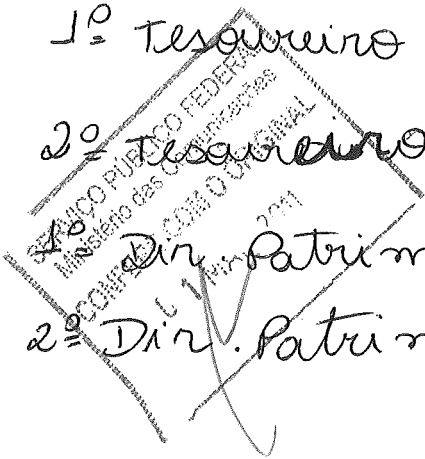 1º Tesoureiro
2º Tesoureiro
1º Dir. Patrim
2º Dir. Patrim
SERVIÇO PÚBLICO FEDERAL
Ministério das Comunicações
CONFERE COM O ORIGINAL
2011